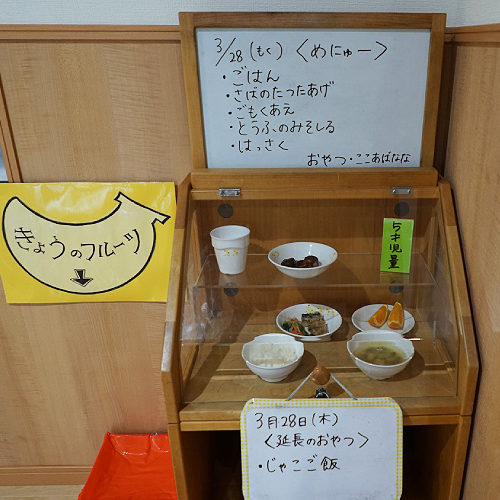 3/28 (もく) 〈めにゅー〉
・ごはん
・さばのたつたあげ
・ごもくあえ
・とうふのみそしる
・はっさく
おやつ・ここあばなな
きょうのフルーツ
↓
5才児量
3月28日(木)
〈延長のおやつ〉
・じゃこご飯